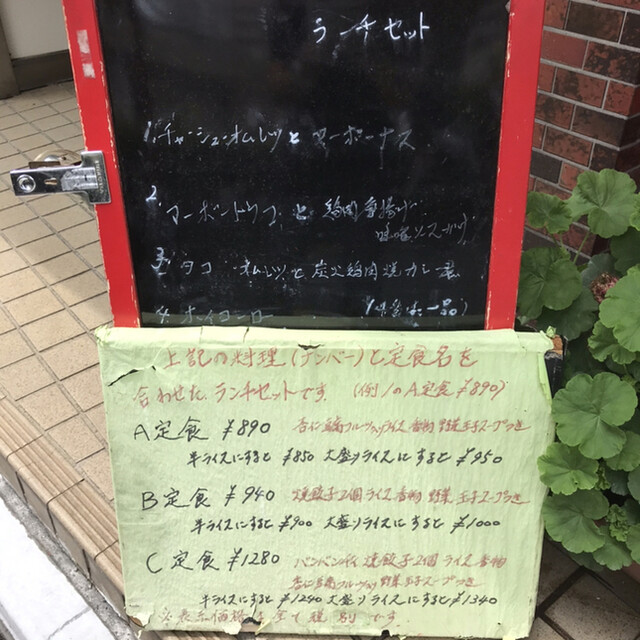 ランチセット
1. チャーシューオムレツと マーボーナス
2. マーボートウフ と 鶏肉唐揚げ
味噌ソースがけ
3. タコ オムレツと炭火鶏肉焼
4. ホイコーロー
上記の料理(ナンバー)と定食名を
合わせた ランチセットです. (例1のA定食¥890)
A定食 ¥890 杏仁豆腐フルーツ入りライス 香物 野菜 玉子スープつき
半ライスにすると ¥850 大盛りライスにすると ¥950
B定食 ¥940 焼餃子2個 ライス 香物 野菜 玉子スープつき
半ライスにすると ¥900 大盛りライスにすると ¥1000
C定食 ¥1280 バンバンジー 焼餃子2個 ライス 香物
杏仁豆腐フルーツ 野菜 玉子スープつき
半ライスにすると ¥1240 大盛りライスにすると ¥1340
※表示価格は全て税別です.